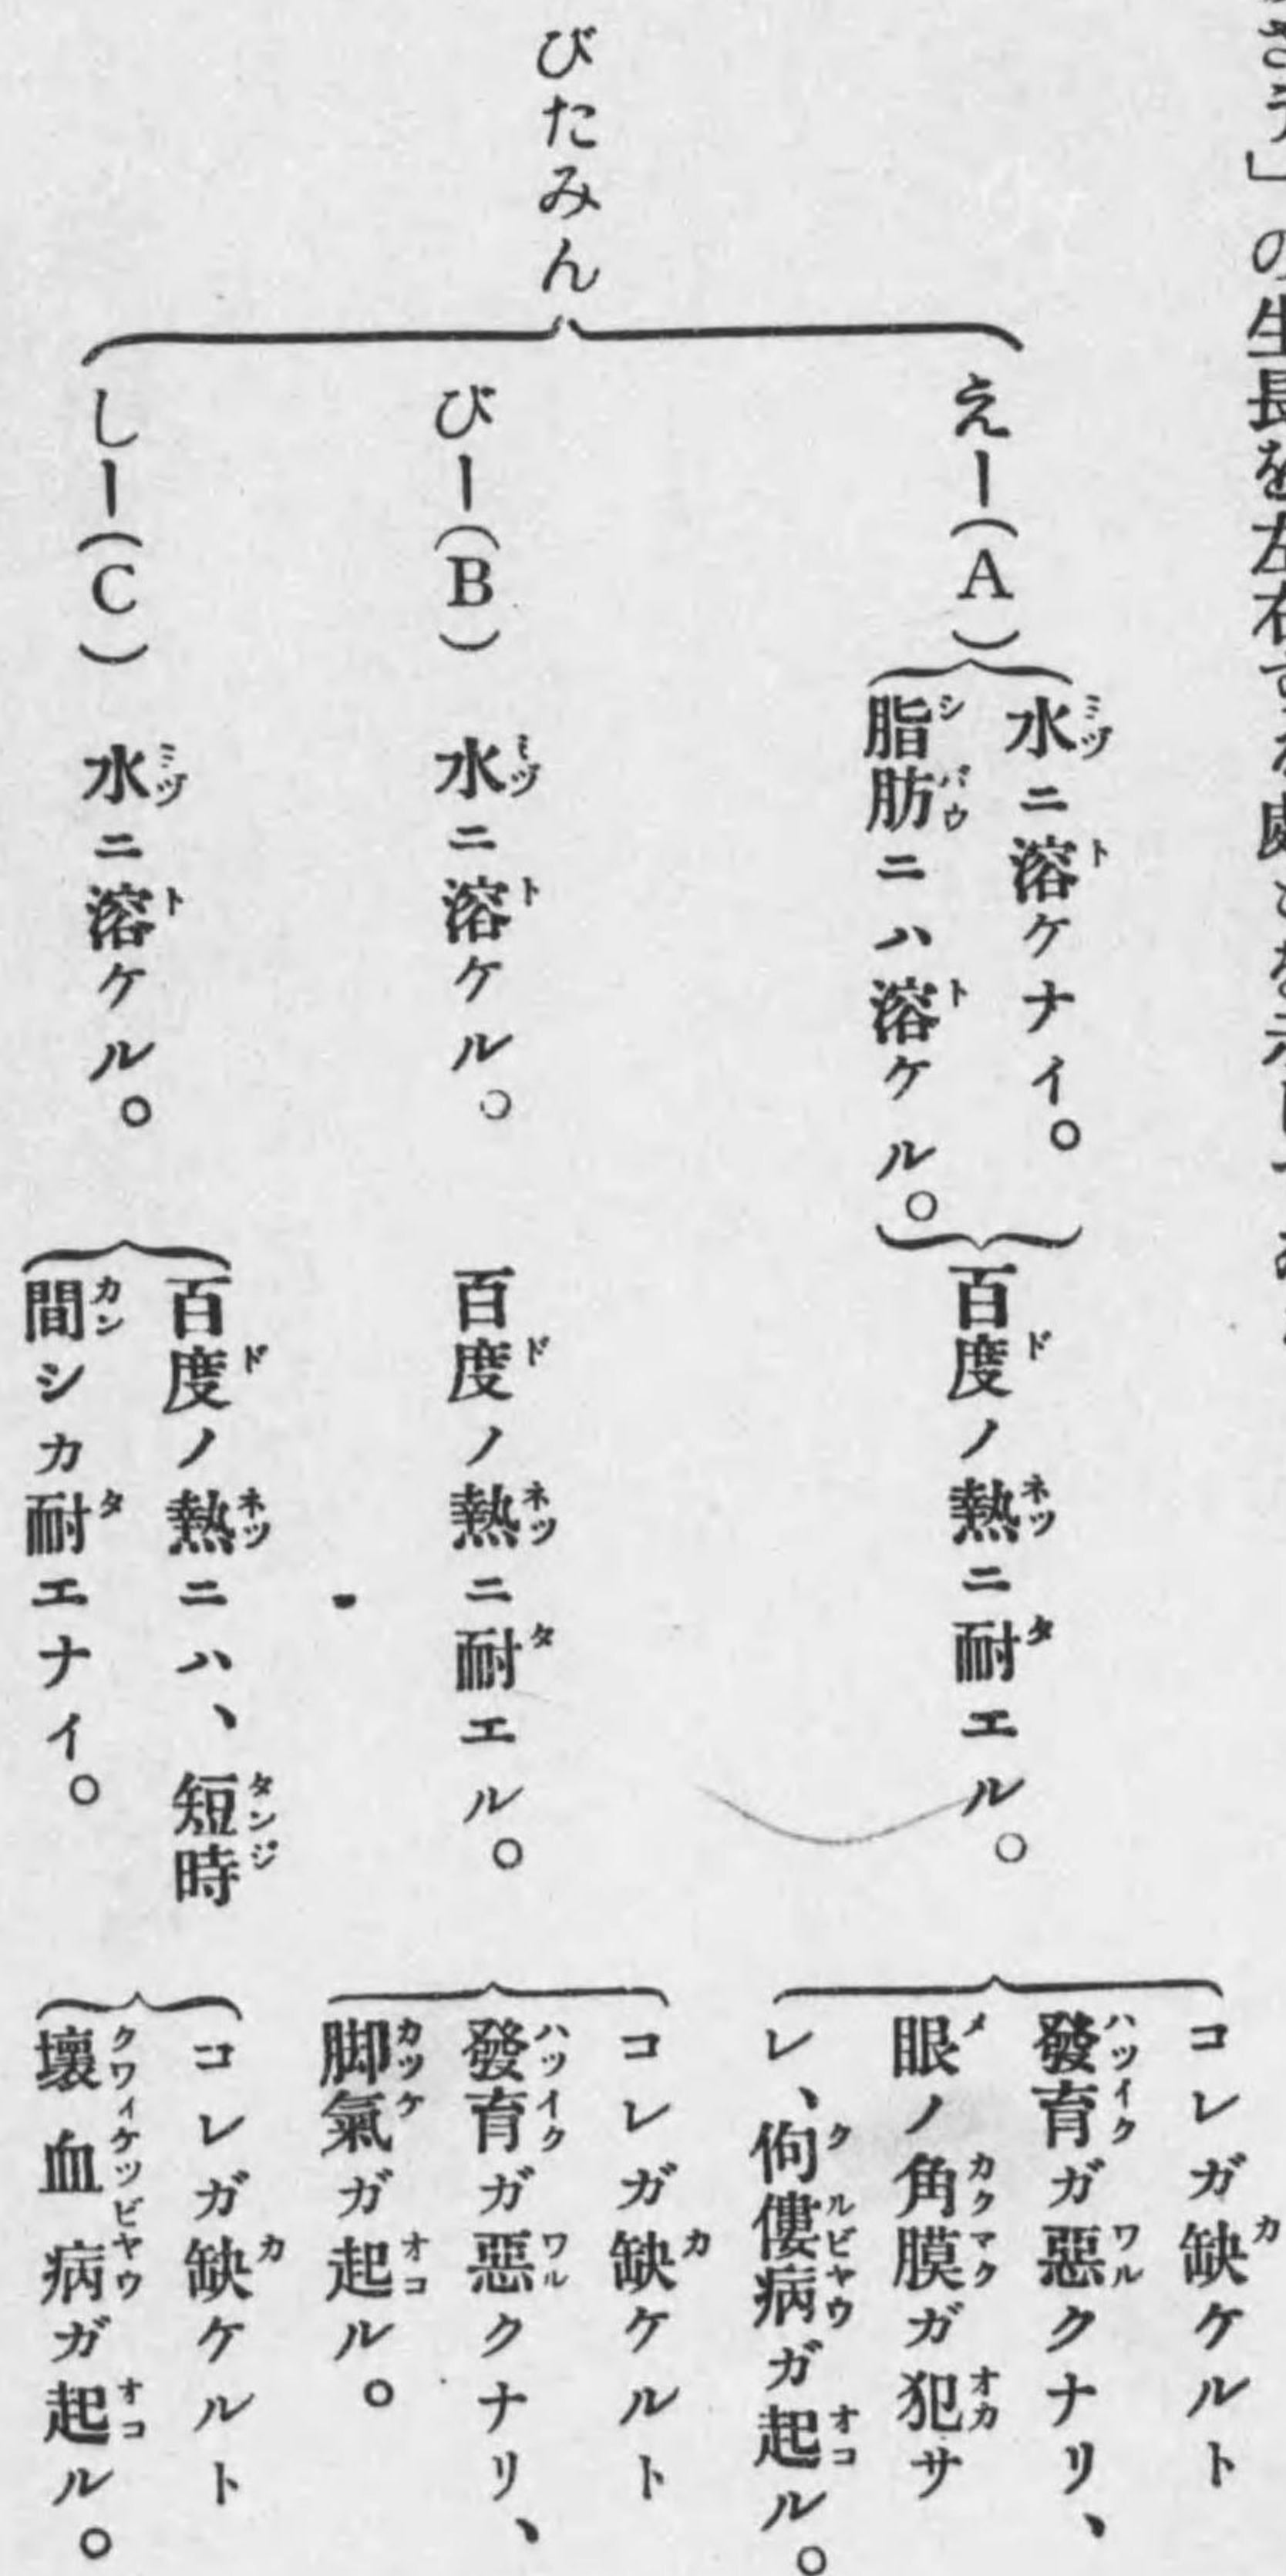 さう」の生長を左右する處とを示してゐ
びたみん
えー(A)
水ニ溶ケナイ。
脂肪ニハ溶ケル。
百度ノ熱ニ耐エル。
コレガ缺ケルト
發育ガ惡クナリ、
眼ノ角膜ガ犯サ
レ、佝僂病ガ起ル。
びー(B)
水ニ溶ケル。
百度ノ熱ニ耐エル。
コレガ缺ケルト
發育ガ惡クナリ、
脚氣ガ起ル。
しー(C)
水ニ溶ケル。
百度ノ熱ニハ、短時
間シカ耐エナイ。
コレガ缺ケルト
壞血病ガ起ル。